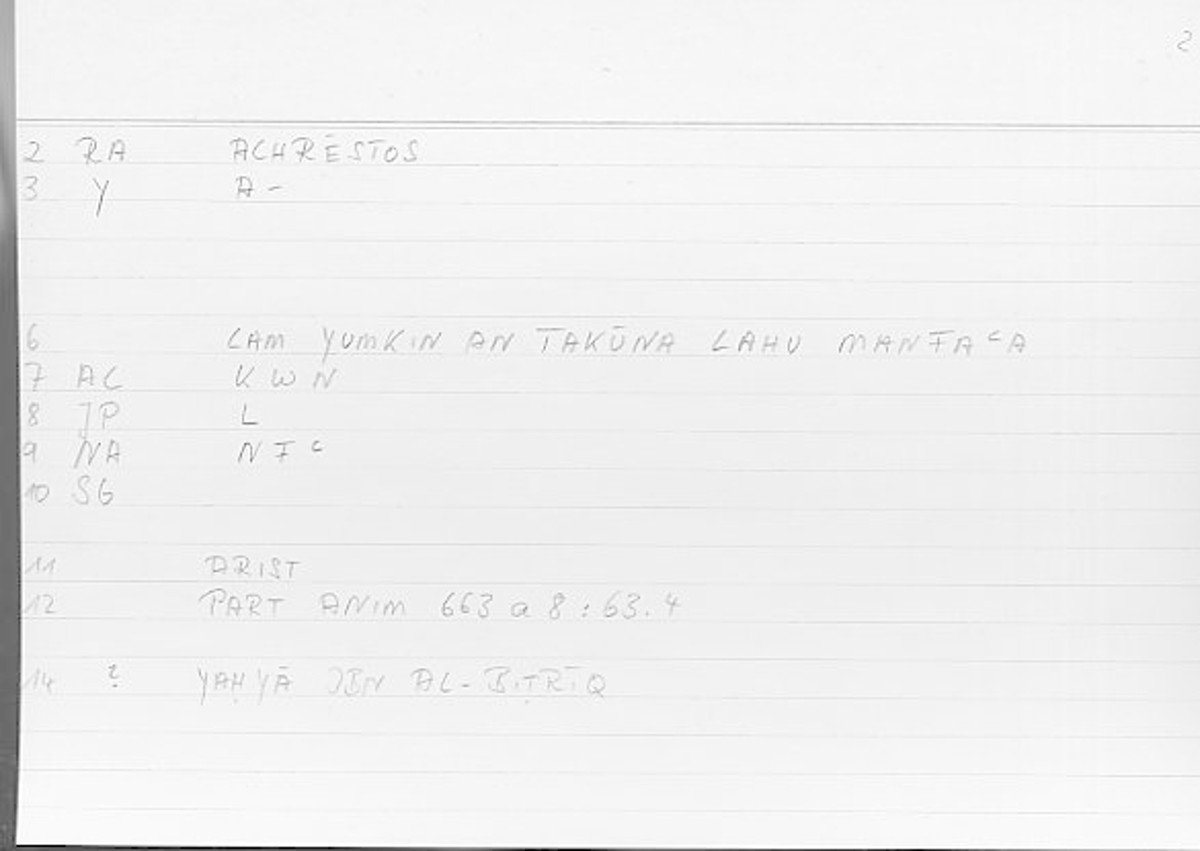 2
2 RA ACHRĒSTOS
3 Y A-
6 LAM YUMKIN AN TAKŪNA LAHU MANFAʿA
7 AC KWN
8 JP L
9 NA NFʿ
10 SG
11 ARIST
12 PART ANIM 663 a 8 : 63.4
14 ? YAḤYĀ IBN AL-BIṬRĪQ